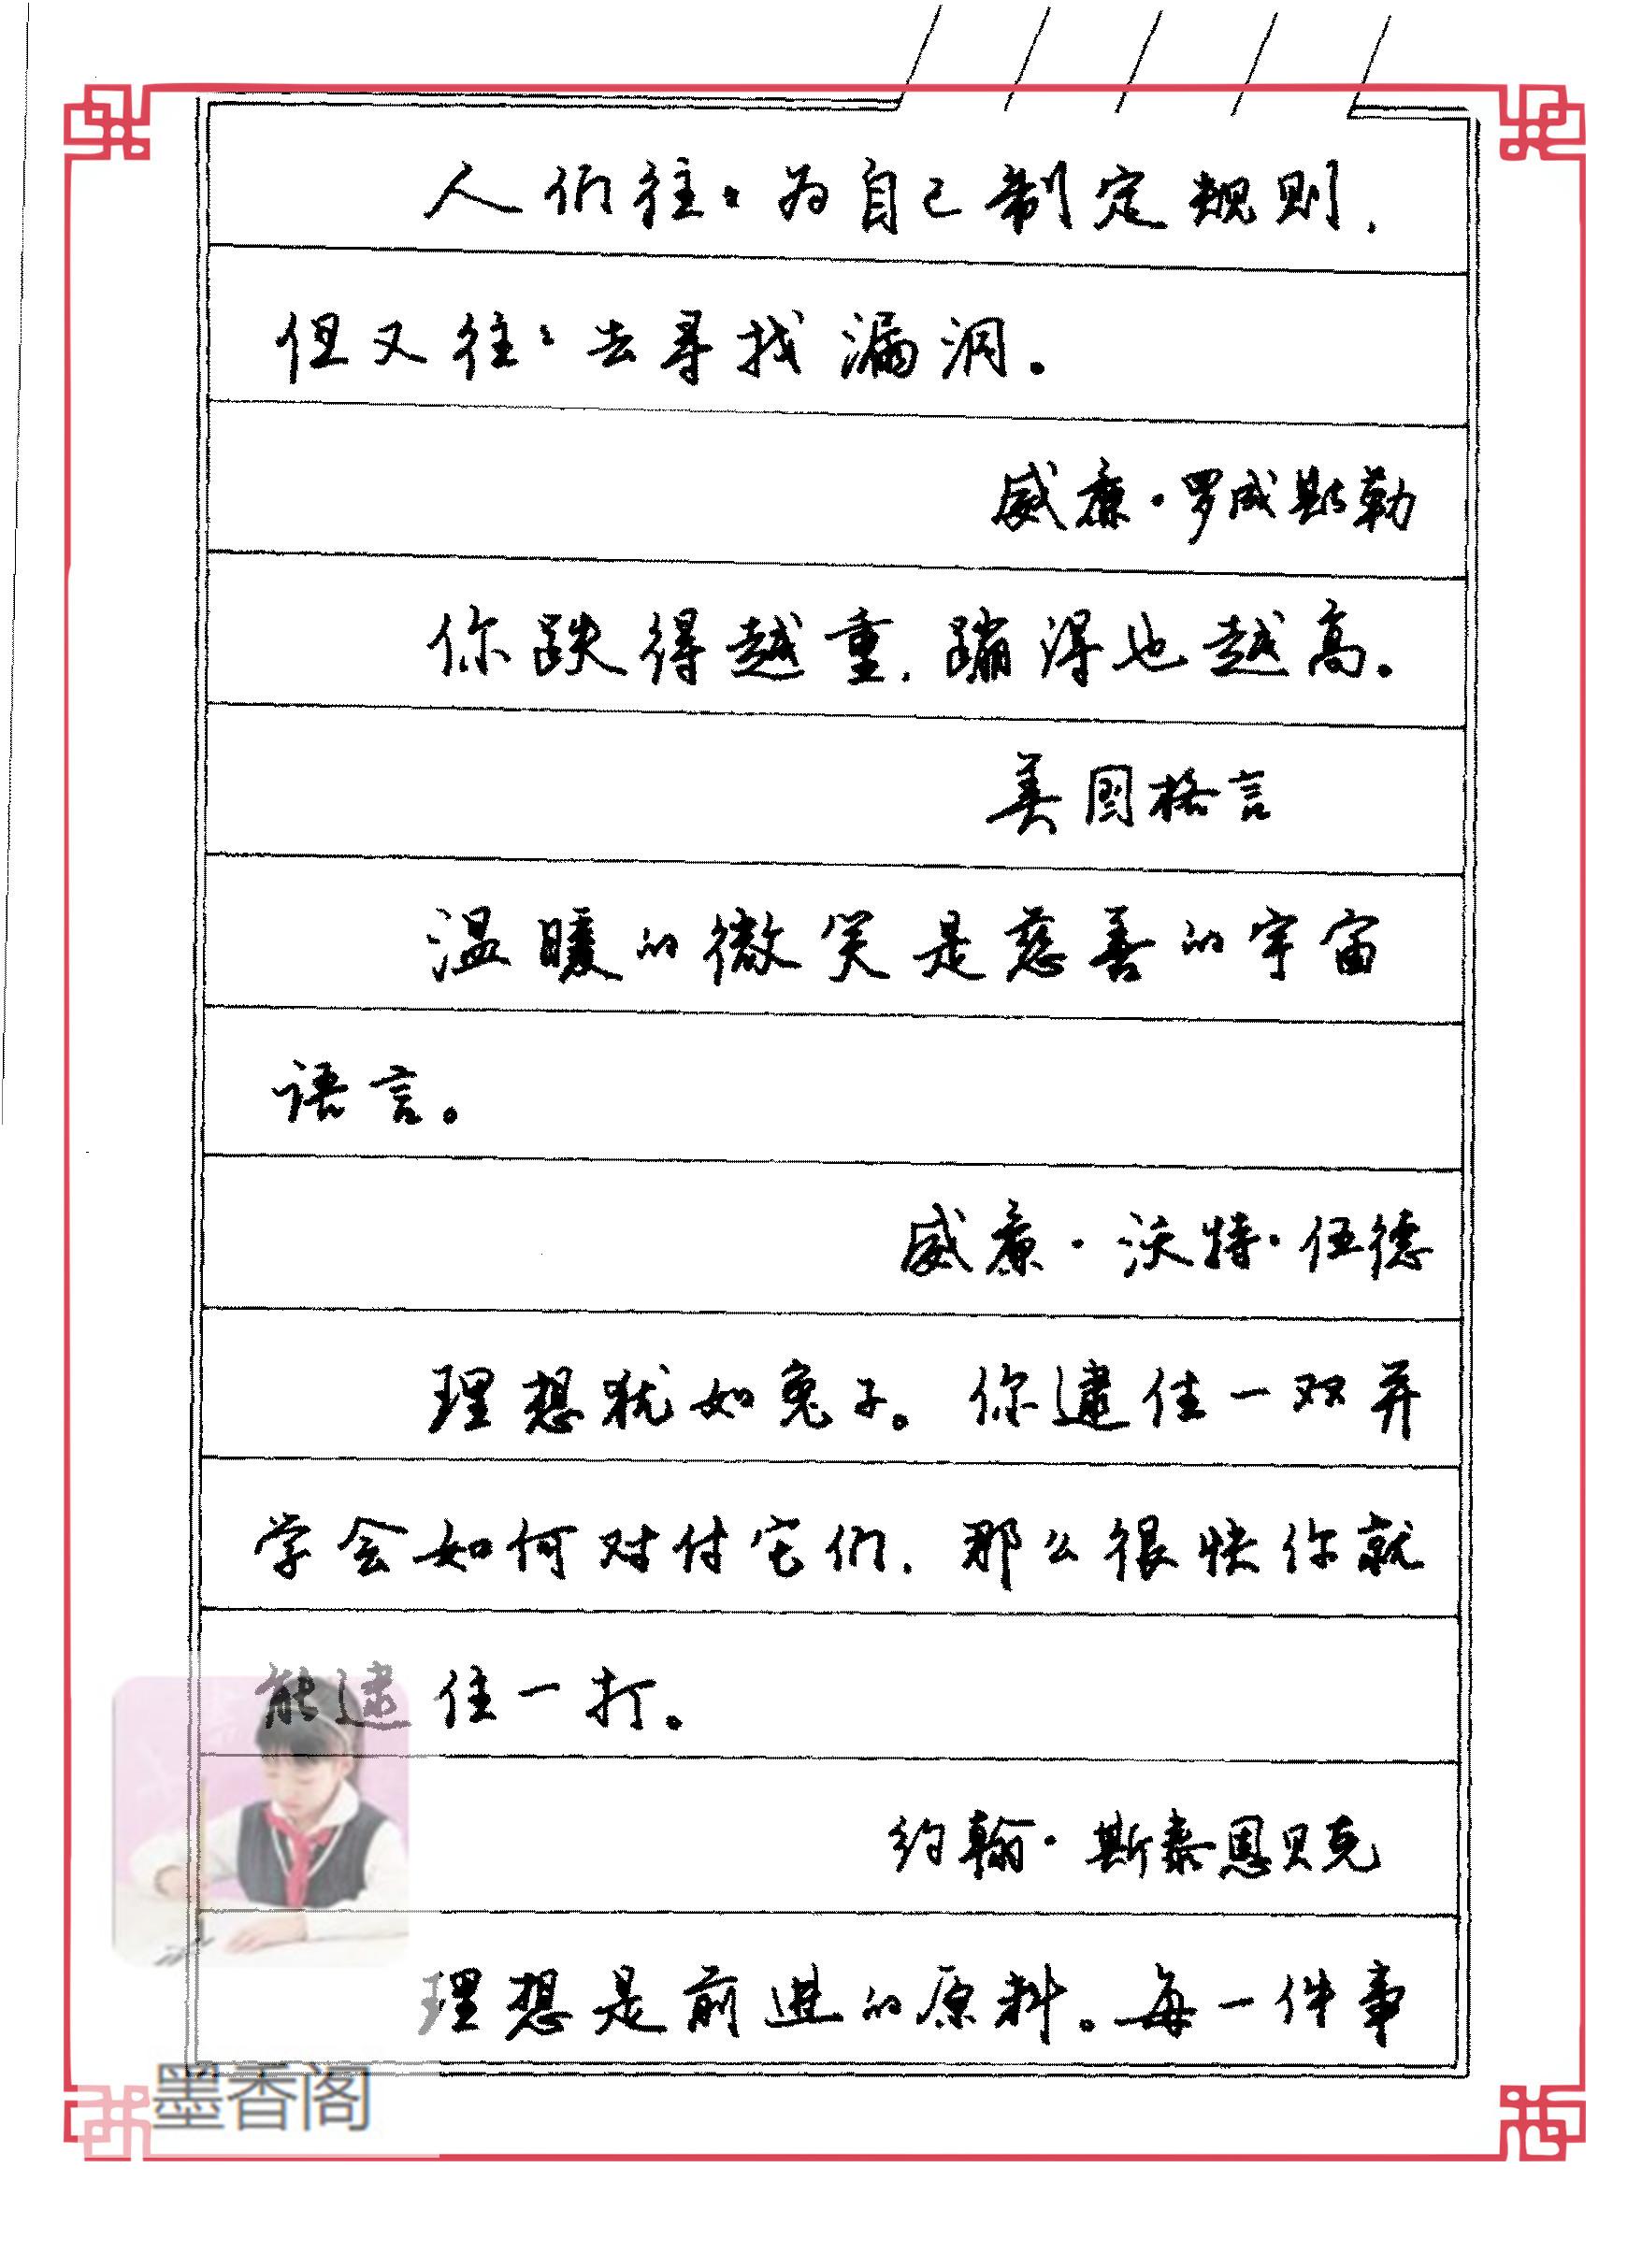 人们往々为自己制定规则，
但又往々去寻找漏洞。
威廉·罗威斯勒
你跌得越重，蹦得也越高。
美国格言
温暖的微笑是慈善的宇宙
语言。
威廉·沃特·伍德
理想犹如兔子。你逮住一双并
学会如何对付它们，那么很快你就
能逮住一打。
约翰·斯泰恩贝克
理想是前进的原料。每一件事
墨香阁